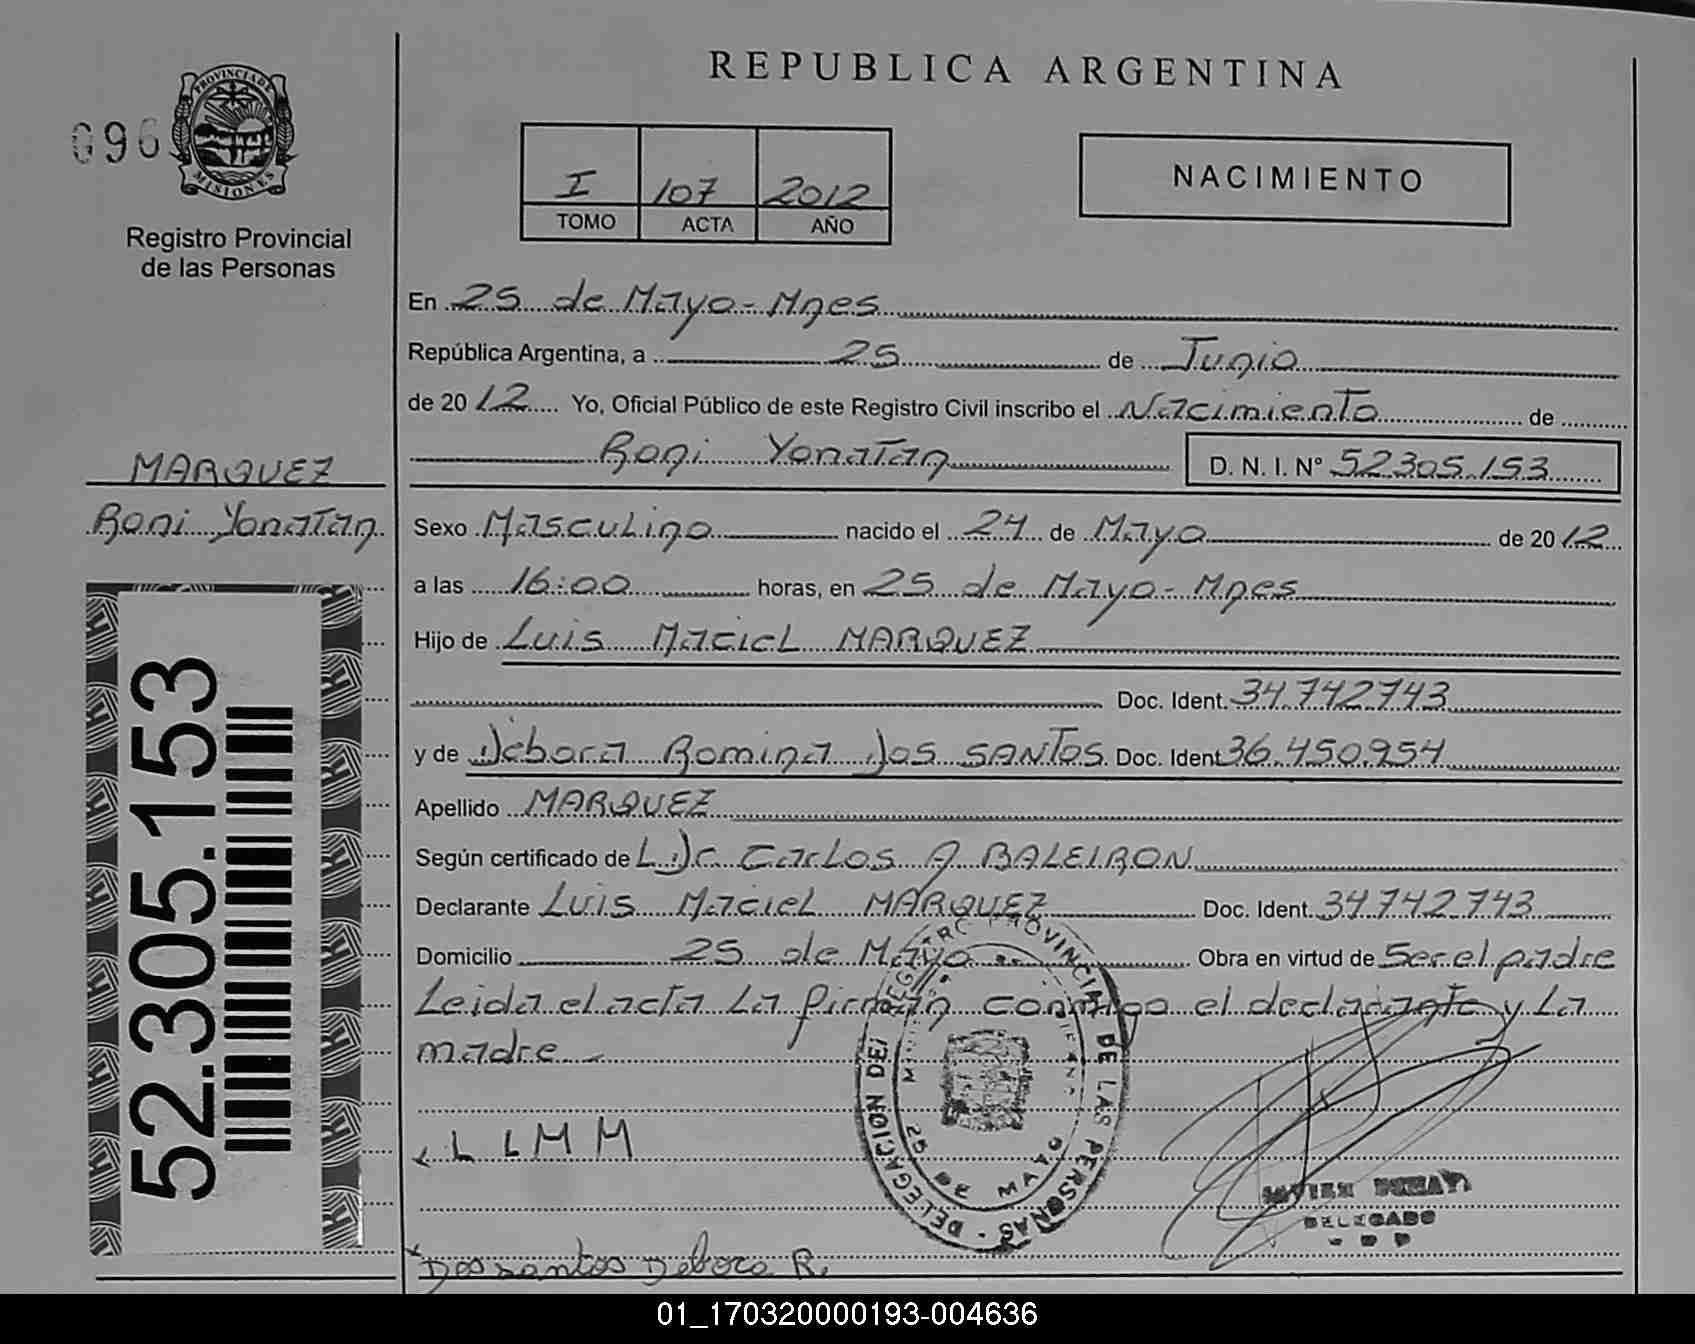 REPUBLICA ARGENTINA
096
PROVINCIA DE MISIONES
Registro Provincial
de las Personas
I 107 2012
TOMO ACTA AÑO
NACIMIENTO
En 25 de Mayo - Mnes
República Argentina, a 25 de Junio
de 2012 Yo, Oficial Público de este Registro Civil inscribo el Nacimiento de
Roni Yonatan D. N. I. N° 52305.153
MARQUEZ
Roni Yonatan
Sexo Masculino nacido el 24 de Mayo de 2012
a las 16:00 horas, en 25 de Mayo - Mnes
Hijo de Luis Maciel MARQUEZ
Doc. Ident. 34.742743
y de Debora Romina Dos SANTOS Doc. Ident 36.450.954
Apellido MARQUEZ
Según certificado de L Dr Carlos A BALEIRON
Declarante Luis Maciel MARQUEZ Doc. Ident. 34742.743
Domicilio 25 de Mayo Obra en virtud de Ser el padre
Leida el acta La firman conmigo el declarante y La
madre
52.305.153
L L M M
DELEGACION DEL REGISTRO PROVINCIAL DE LAS PERSONAS
25 DE MAYO
DELEGADO
Dos santos Debora R.
01_170320000193-004636